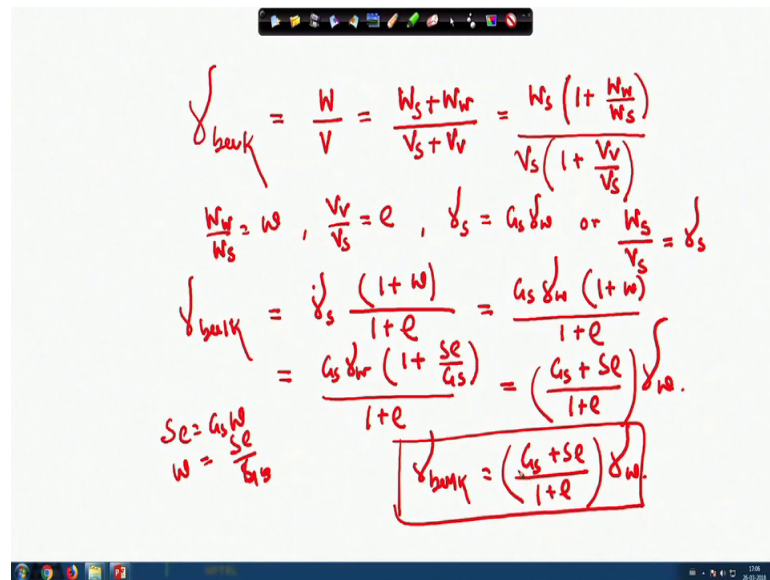 γbulk = W/V = (Ws + Ww)/(Vs + Vv) = Ws(1 + Ww/Ws)/Vs(1 + Vv/Vs)
Ww/Ws = w , Vv/Vs = e , γs = Gsγw or Ws/Vs = γs
γbulk = γs (1 + w)/(1 + e) = Gsγw (1 + w)/(1 + e)
= Gsγw (1 + Se/Gs)/(1 + e) = ((Gs + Se)/(1 + e)) γw.
Se = Gsw
w = Se/Gs
γbulk = ((Gs + Se)/(1 + e)) γw.
17:06